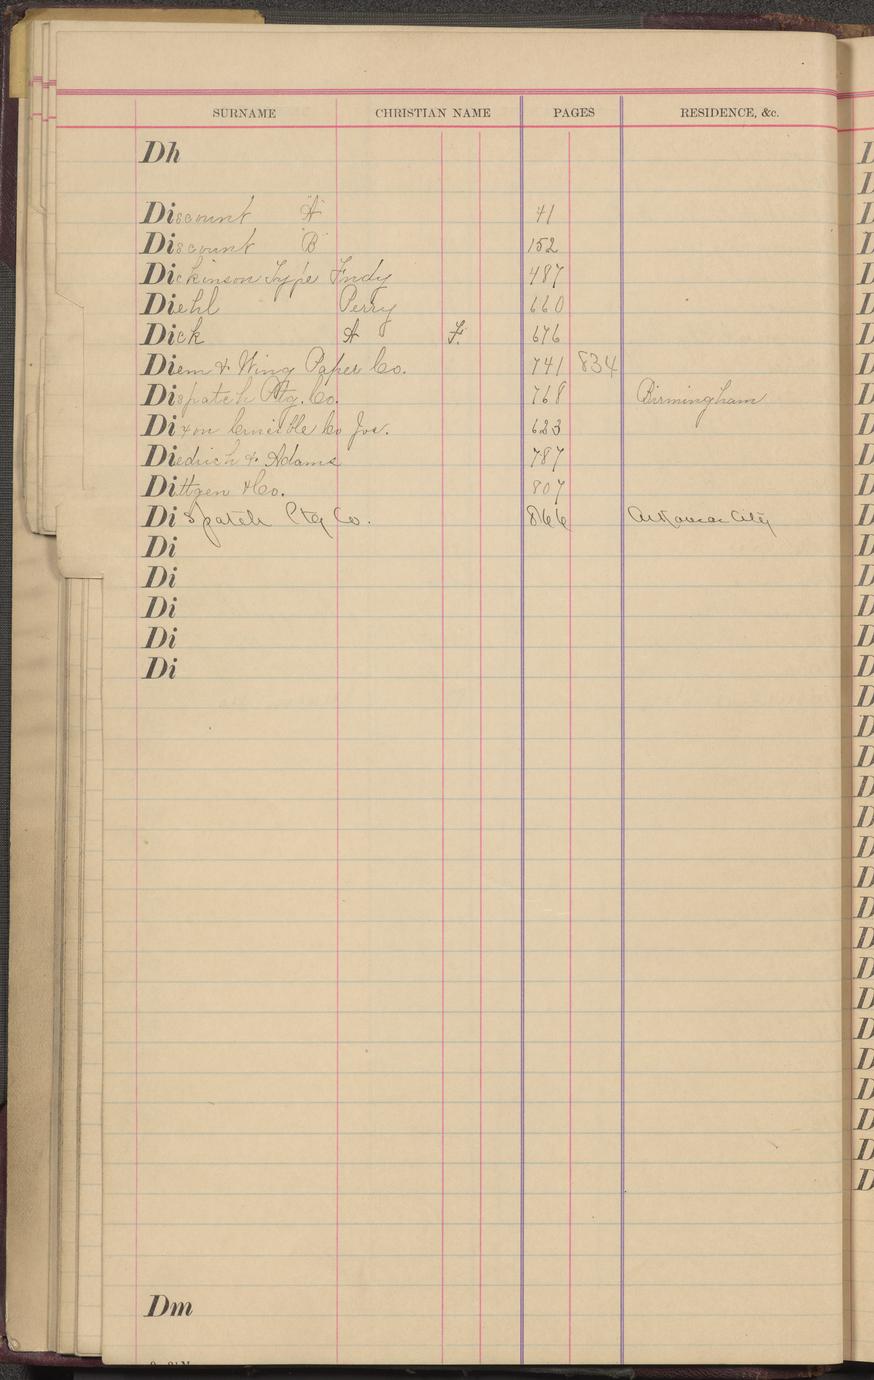 SURNAME CHRISTIAN NAME PAGES RESIDENCE, &c.
Dh
Discount "A" 41
Discount "B" 152
Dickinson Type Fndy 487
Diehl Perry 660
Dick A F. 676
Diem & Wing Paper Co. 741 834
Dispatch Ptg. Co. 768 Birmingham
Dixon Crucible Co Jos. 623
Diedrich & Adams 787
Dittgen & Co. 807
Dispatch Ptg Co. 866 Arkansas City
Di
Di
Di
Di
Di
Dm